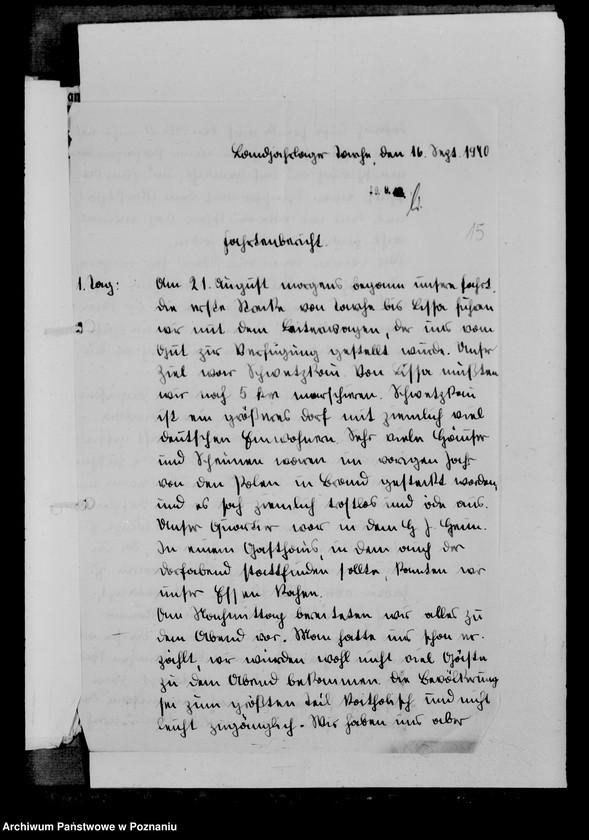 Landjahrlager Tarche, den 16. Sept. 1940
15
Fahrtenbericht.
1. Tag: Am 21. August morgens begann unsere Fahrt.
die erste Strecke von Tarche bis Lissa fuhren
wir mit dem Leiterwagen, der uns vom
Gut zur Verfügung gestellt wurde. Unser
Ziel war Schwetzkau. Von Lissa mußten
wir noch 5 km marschieren. Schwetzkau
ist ein größeres Dorf mit ziemlich viel
deutschen Einwohnern. Sehr viele Häuser
und Scheunen waren im vorigen Jahr
von den Polen in Brand gesteckt worden,
und es sah ziemlich trostlos und öde aus.
Unser Quartier war in dem H J. Heim.
In einem Gasthaus, in dem auch der
Dorfabend stattfinden sollte, konnten wir
unser Essen kochen.
Am Nachmittag bereiteten wir alles zu
dem Abend vor. Man hatte uns schon er-
zählt, wir würden wohl nicht viel Gäste
zu dem Abend bekommen. Die Bevölkerung
sei zum größten Teil katholisch und nicht
leicht zugänglich. Wir haben uns aber
Archiwum Państwowe w Poznaniu